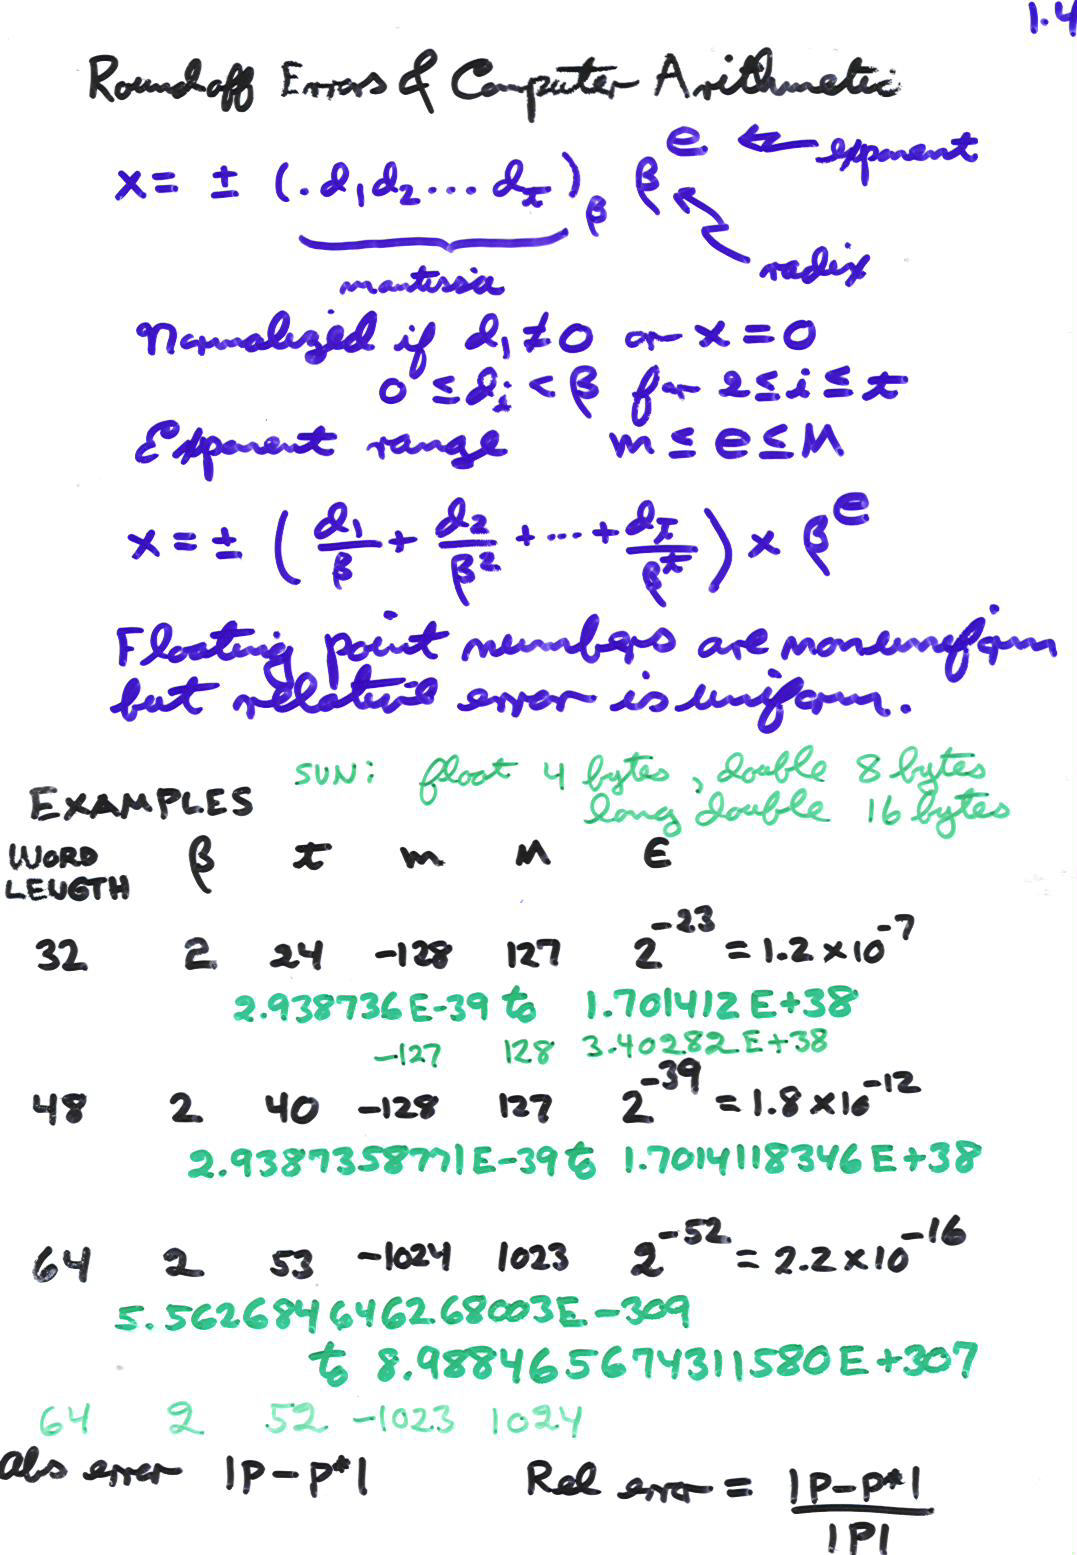 1.4
Roundoff Errors & Computer Arithmetic
x = ± (.d₁d₂...d_t)_β β^e ← exponent
radix
mantissa
Normalized if d₁ ≠ 0 or x = 0
0 ≤ d_i < β for 2 ≤ i ≤ t
Exponent range m ≤ e ≤ M
x = ± (d₁/β + d₂/β² + ... + d_t/β^t) × β^e
Floating point numbers are nonuniform
but relative error is uniform.
SUN: float 4 bytes, double 8 bytes
EXAMPLES long double 16 bytes
WORD LENGTH β t m M ϵ
32 2 24 -128 127 2^-23 = 1.2 × 10^-7
2.938736E-39 to 1.701412E+38
-127 128 3.40282E+38
48 2 40 -128 127 2^-39 = 1.8 × 10^-12
2.9387358771E-39 to 1.7014118346E+38
64 2 53 -1024 1023 2^-52 = 2.2 × 10^-16
5.562684646268003E-309
to 8.988465674311580E+307
64 2 52 -1023 1024
Abs error |p - p*| Rel error = |p - p*| / |p|